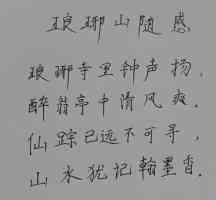 琅琊山随感
琅琊寺里钟声扬，
醉翁亭中清风爽。
仙踪已远不可寻，
山水犹记翰墨香。